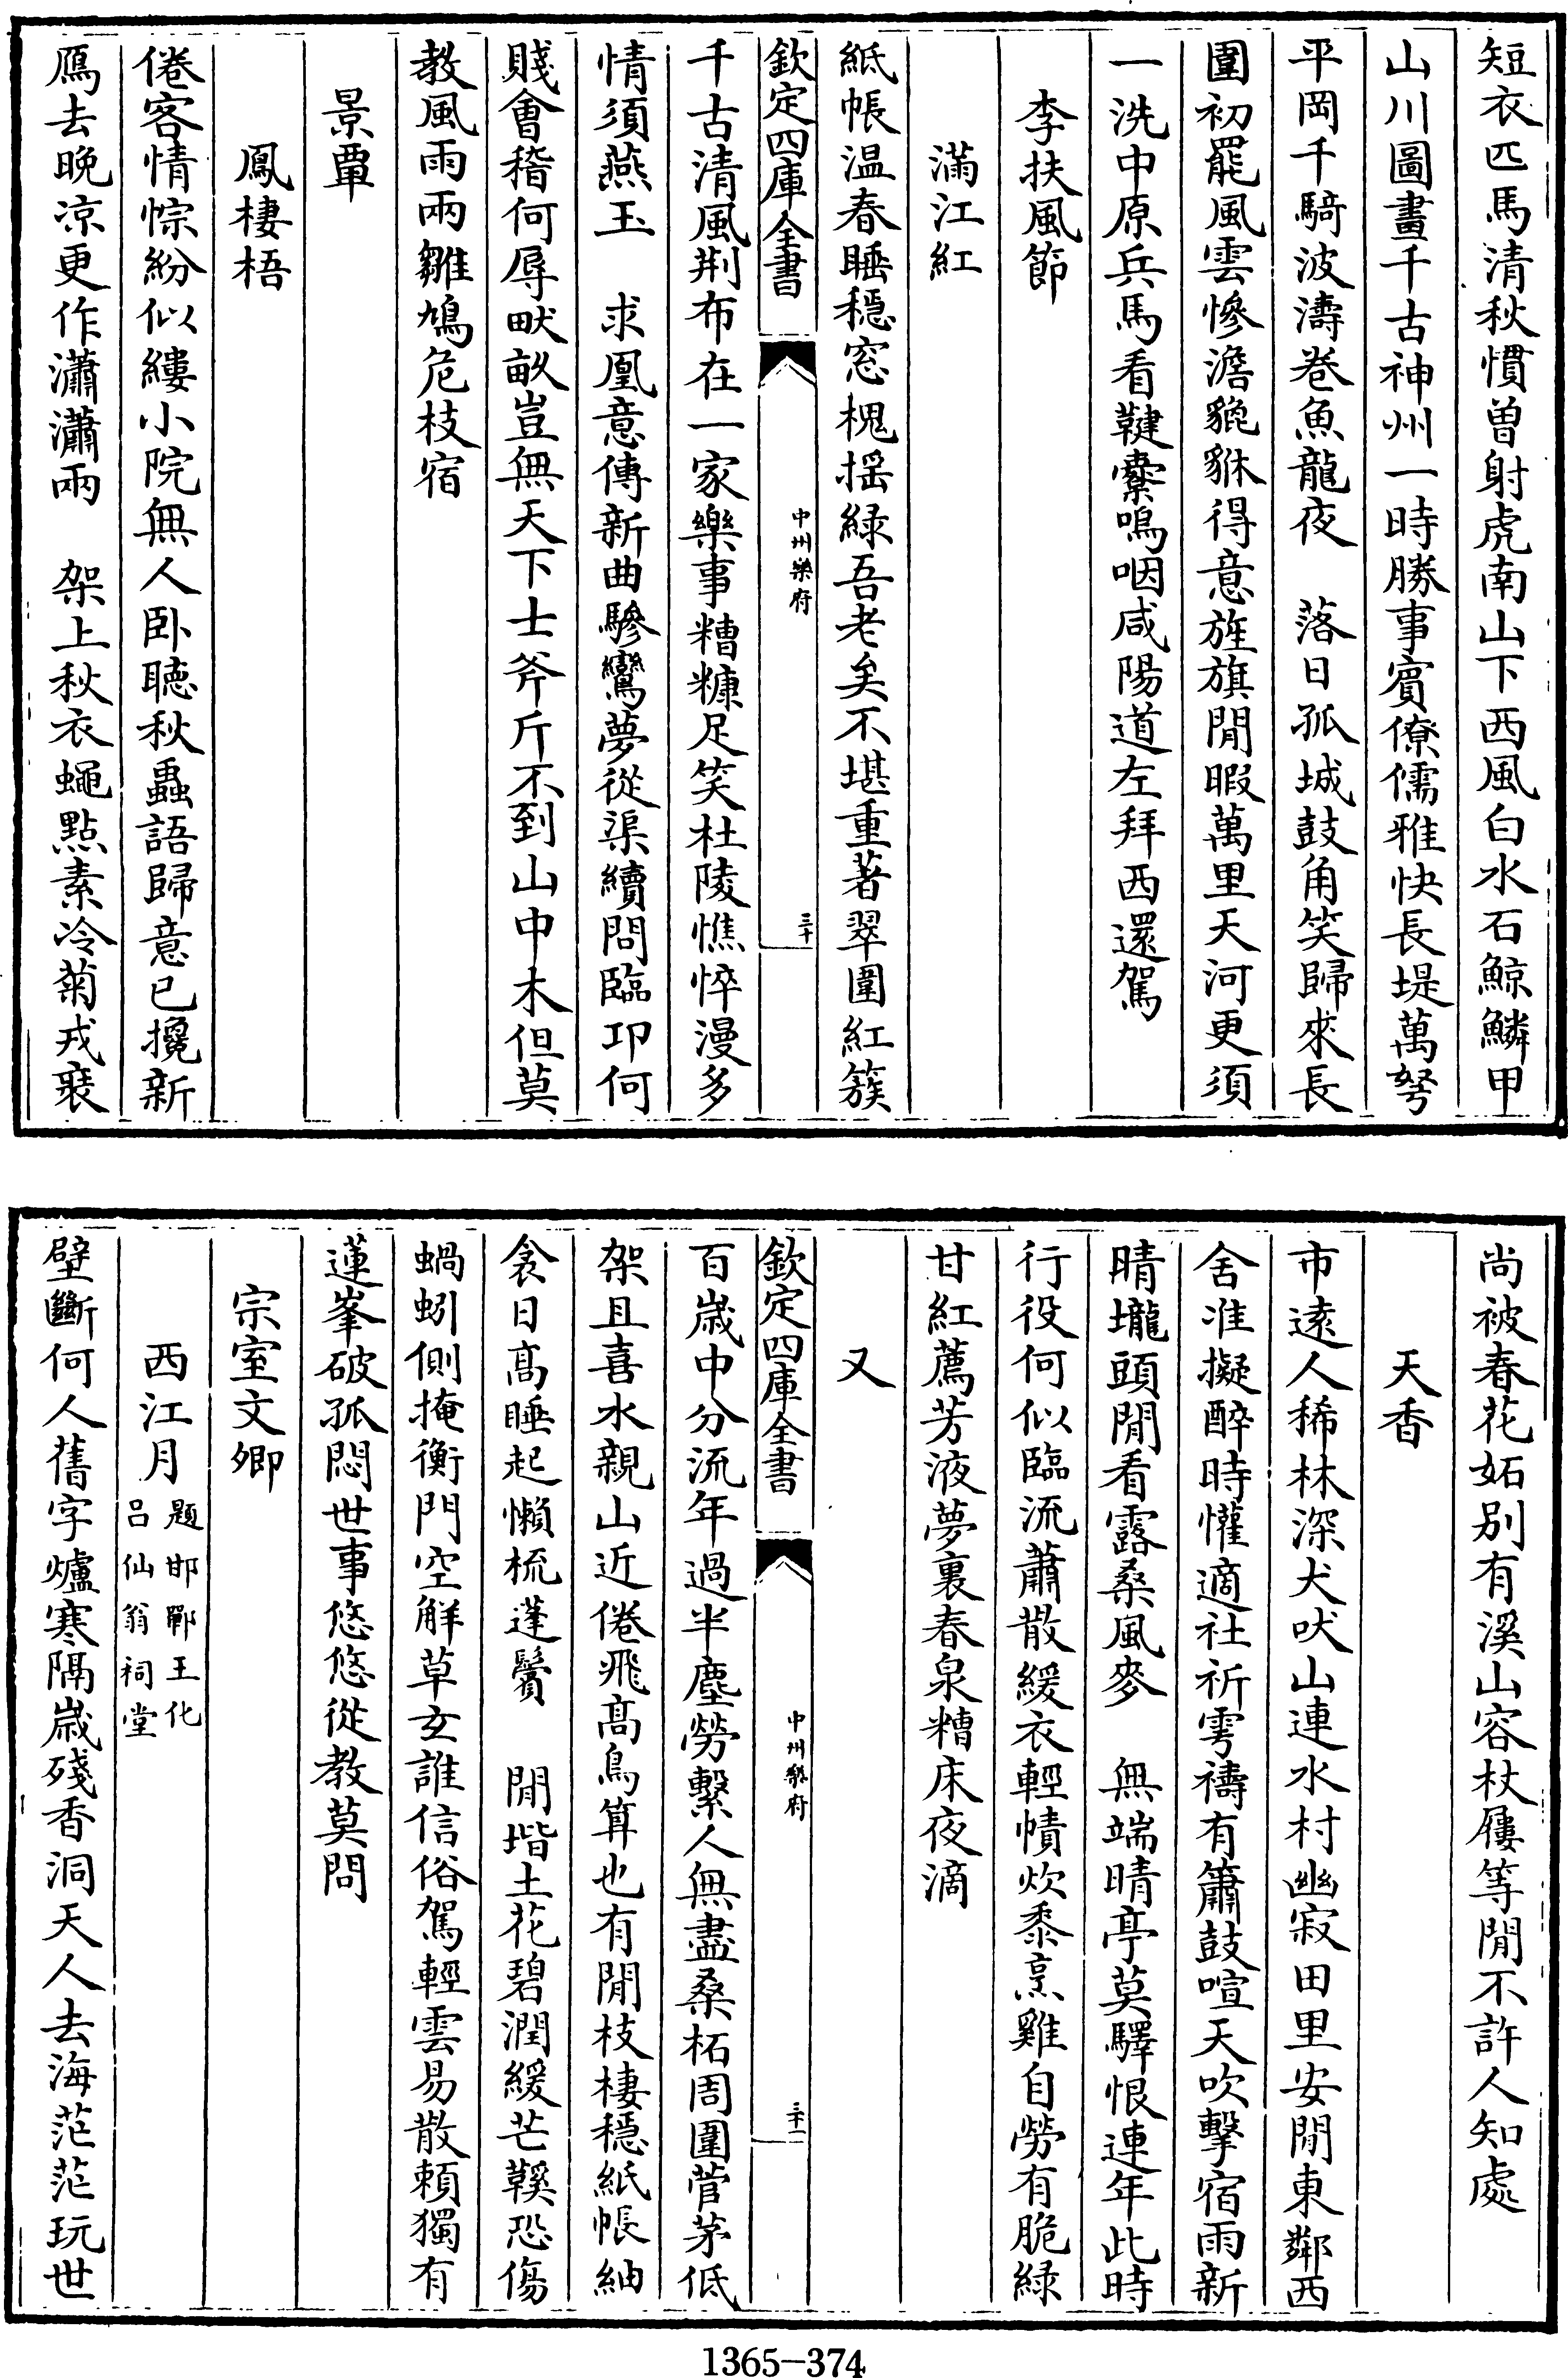 短衣匹馬清秋慣曽射虎南山下西風白水石鯨鱗甲
山川圖畫千古神州一時勝事賓僚儒雅快長堤萬弩
平岡千騎波濤卷魚龍夜　落日孤城鼓角笑歸來長
圍初罷風雲慘澹貔貅得意旌旗閒暇萬里天河更須
一洗中原兵馬看鞬櫜嗚咽咸陽道左拜西還駕
李扶風節
滿江紅
紙帳温春睡穩窓槐揺緑吾老矣不堪重著翠圍紅簇
欽定四庫全書
中州樂府
三十
千古清風荆布在一家樂事糟糠足笑杜陵憔悴漫多
情須燕玉　求凰意傳新曲驂鸞夢從渠續問臨卭何
賤會稽何辱畎畝豈無天下士斧斤不到山中木但莫
教風雨兩雛鳩危枝宿
景覃
鳳棲梧
倦客情悰紛似縷小院無人卧聴秋蟲語歸意已攙新
鴈去晚凉更作瀟瀟雨　架上秋衣蠅點素冷菊戎葵
尚被春花妬别有溪山容杖屨等閒不許人知處
天香
市逺人稀林深犬吠山連水村幽寂田里安閒東鄰西
舍准擬醉時懽適社祈雩禱有簫鼓喧天吹擊宿雨新
晴壠頭閒看露桑風麥　無端晴亭莫驛恨連年此時
行役何似臨流蕭散緩衣輕幘炊黍烹雞自勞有脆緑
甘紅薦芳液夢裏春泉糟床夜滴
又
欽定四庫全書
中州樂府
三十一
百嵗中分流年過半塵勞繫人無盡桑柘周圍菅茅低
架且喜水親山近倦飛髙鳥算也有閒枝棲穩紙帳紬
衾日髙睡起懶梳蓬鬢　閒堦土花碧潤緩芒鞵恐傷
蝸蚓側掩衡門空解草𤣥誰信俗駕輕雲易散頼獨有
蓮峯破孤悶世事悠悠從教莫問
宗室文卿
西江月題邯鄲王化吕仙翁祠堂
壁斷何人舊字爐寒隔嵗殘香洞天人去海茫茫玩世
1365—374